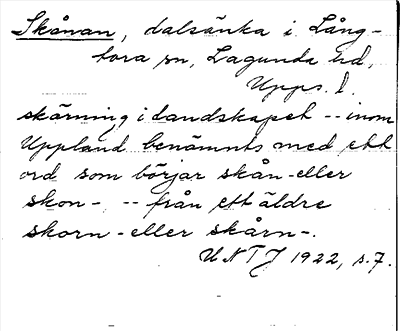 Skånan, dalsänka i Lång-
tora sn, Lagunda hd,
Upps. l.
skärning i landskapet -- inom
Uppland benämnts med ett
ord som börjar skån- eller
skon- -- från ett äldre
skorn- eller skårn-.
UNTJ 1922, s. 7.